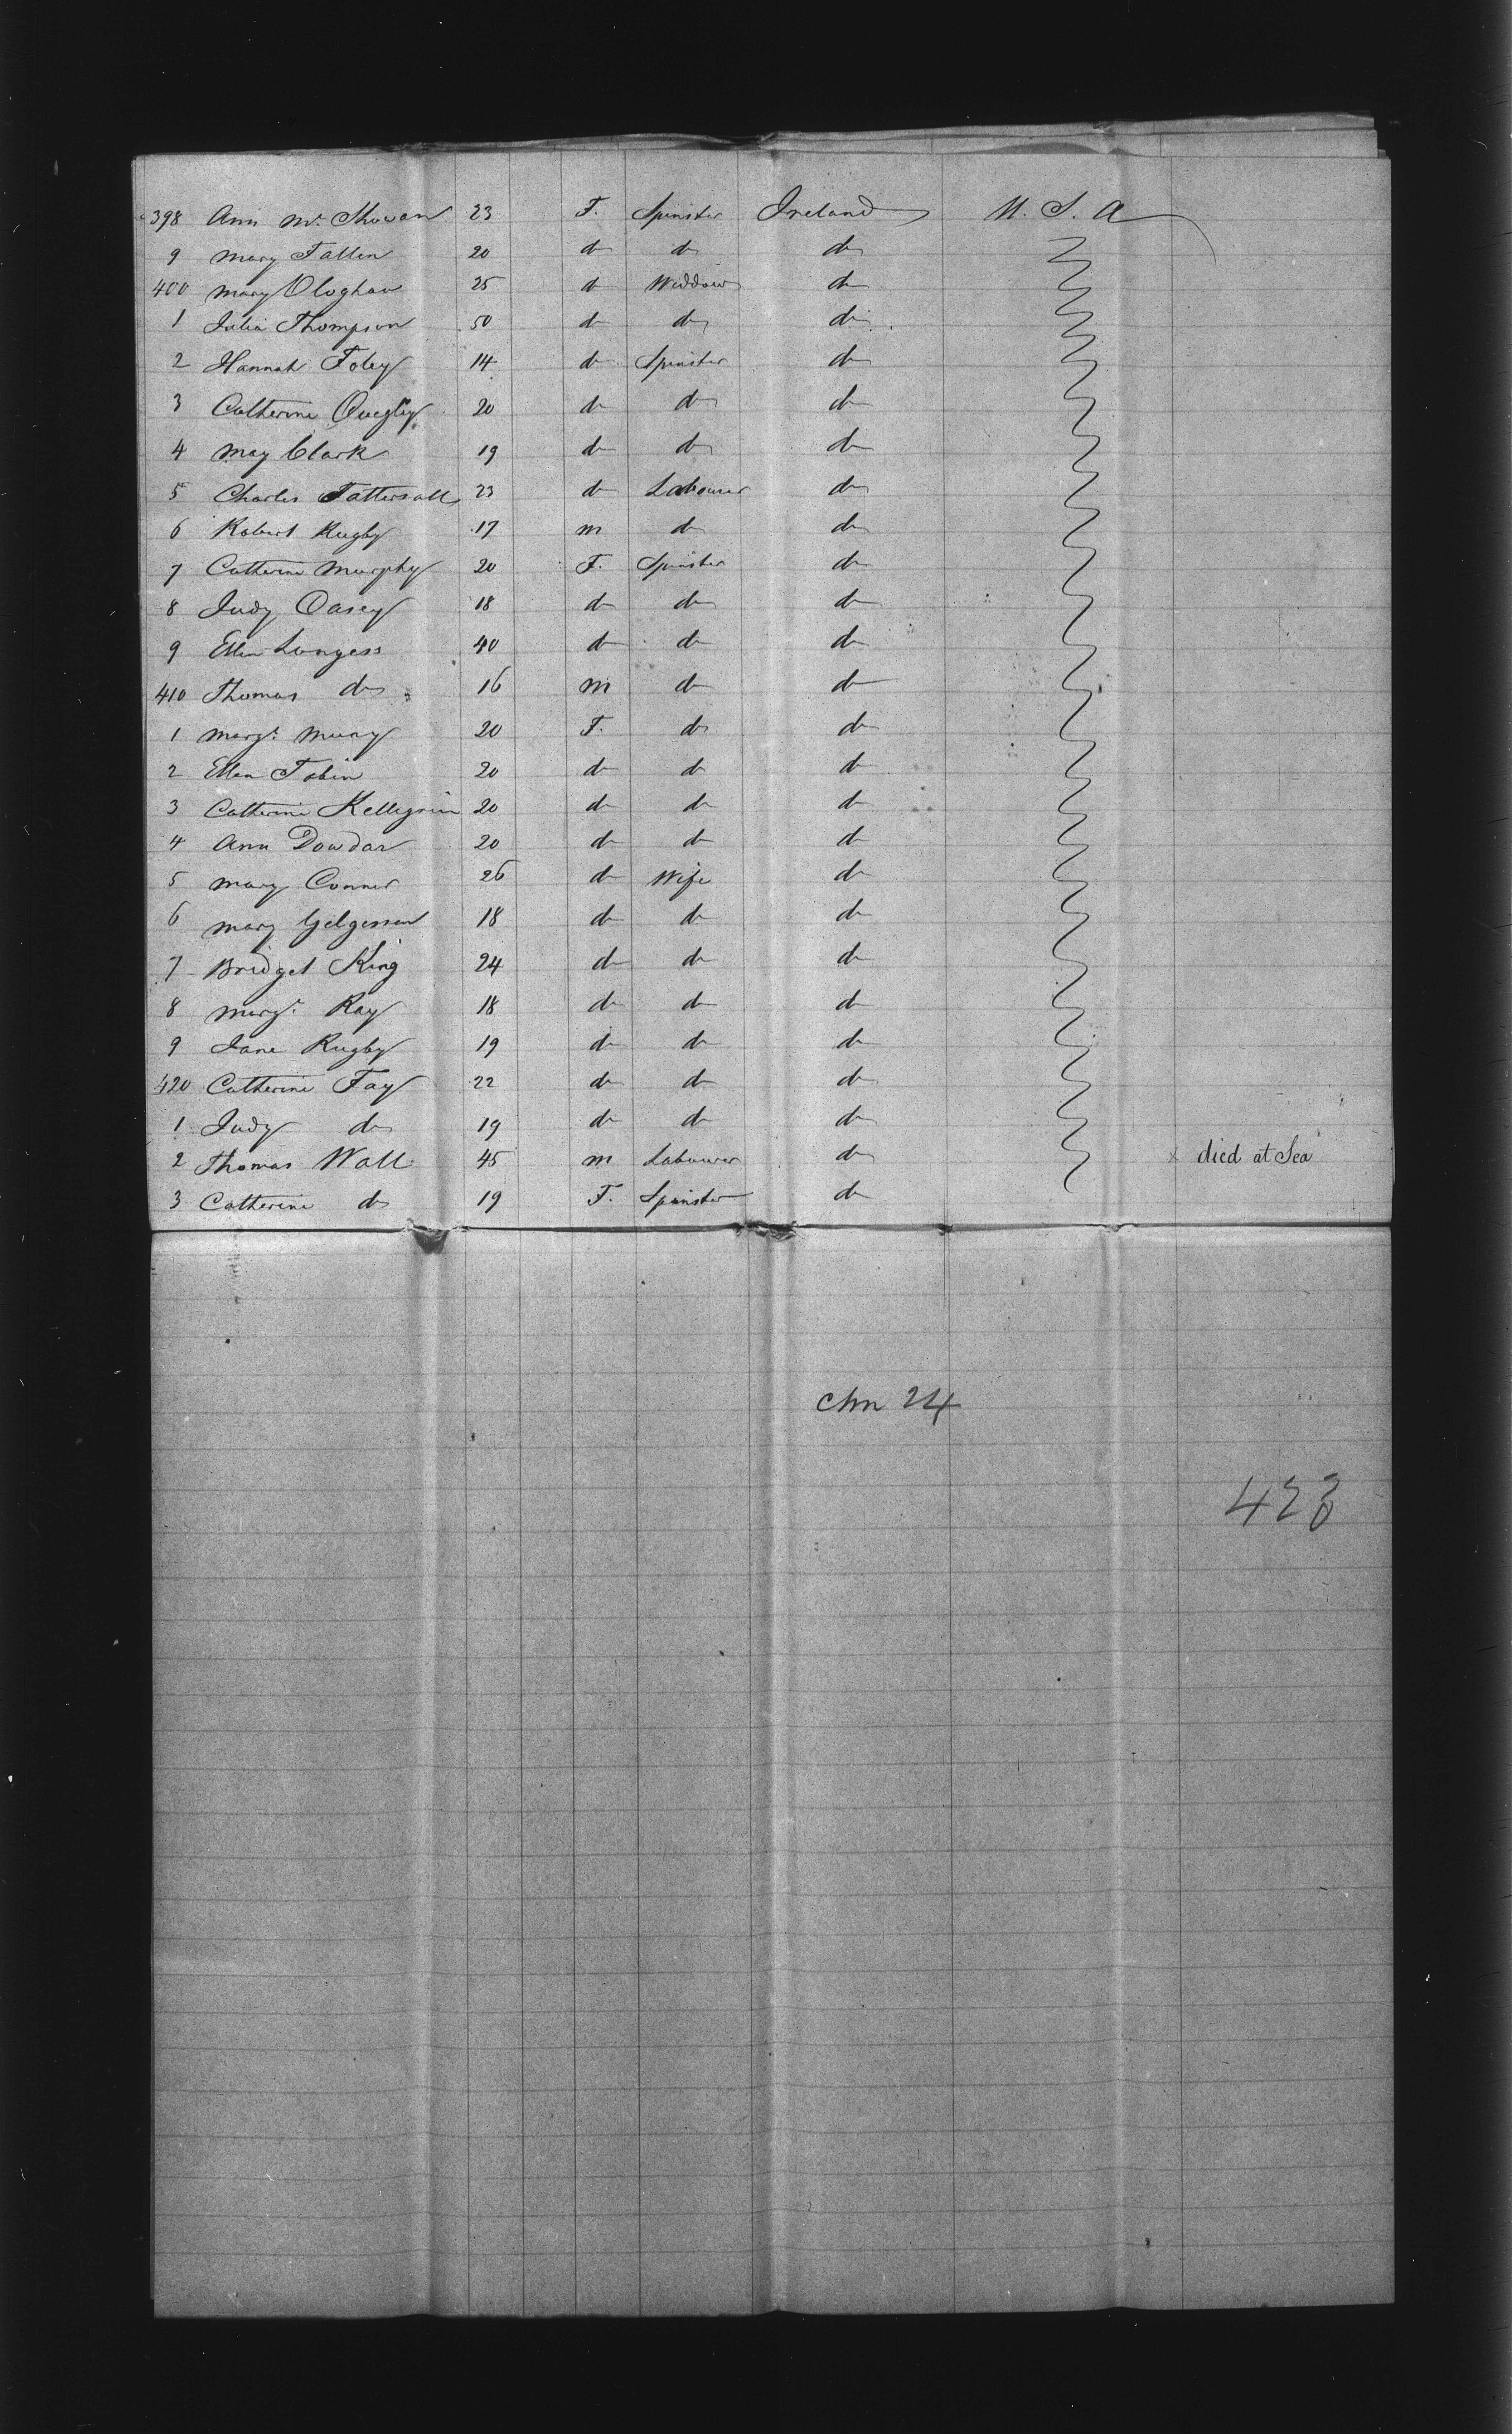 398 Ann Mc. Showan 23 F. Spinster Ireland U. S. A
9 Mary Fallen 20 do do do
400 Mary Ologhan 25 do Widdow do
1 Julia Thompson 50 do do do
2 Hannah Foley 14 do Spinster do
3 Catherine Quegley 20 do do do
4 May Clark 19 do do do
5 Charles Tattersall 23 do Labourer do
6 Robert Rugby 17 m do do
7 Catherine Murphy 20 F. Spinster do
8 Judy Casey 18 do do do
9 Ellen Longess 40 do do do
410 Thomas do 16 m do do
1 Margt. 20 F. do do
2 Ellen Tobin 20 do do do
3 Catherine 20 do do do
4 Ann Dowdar 20 do do do
5 Mary Conner 26 do Wife do
6 Mary 18 do do do
7 Bridget King 24 do do do
8 Margt. Ray 18 do do do
9 Jane Rugby 19 do do do
420 Catherine Fay 22 do do do
1 Judy do 19 do do do
2 Thomas Wall 45 m Labourer do x died at Sea
3 Catherine do 19 F. Spinster do
24
423